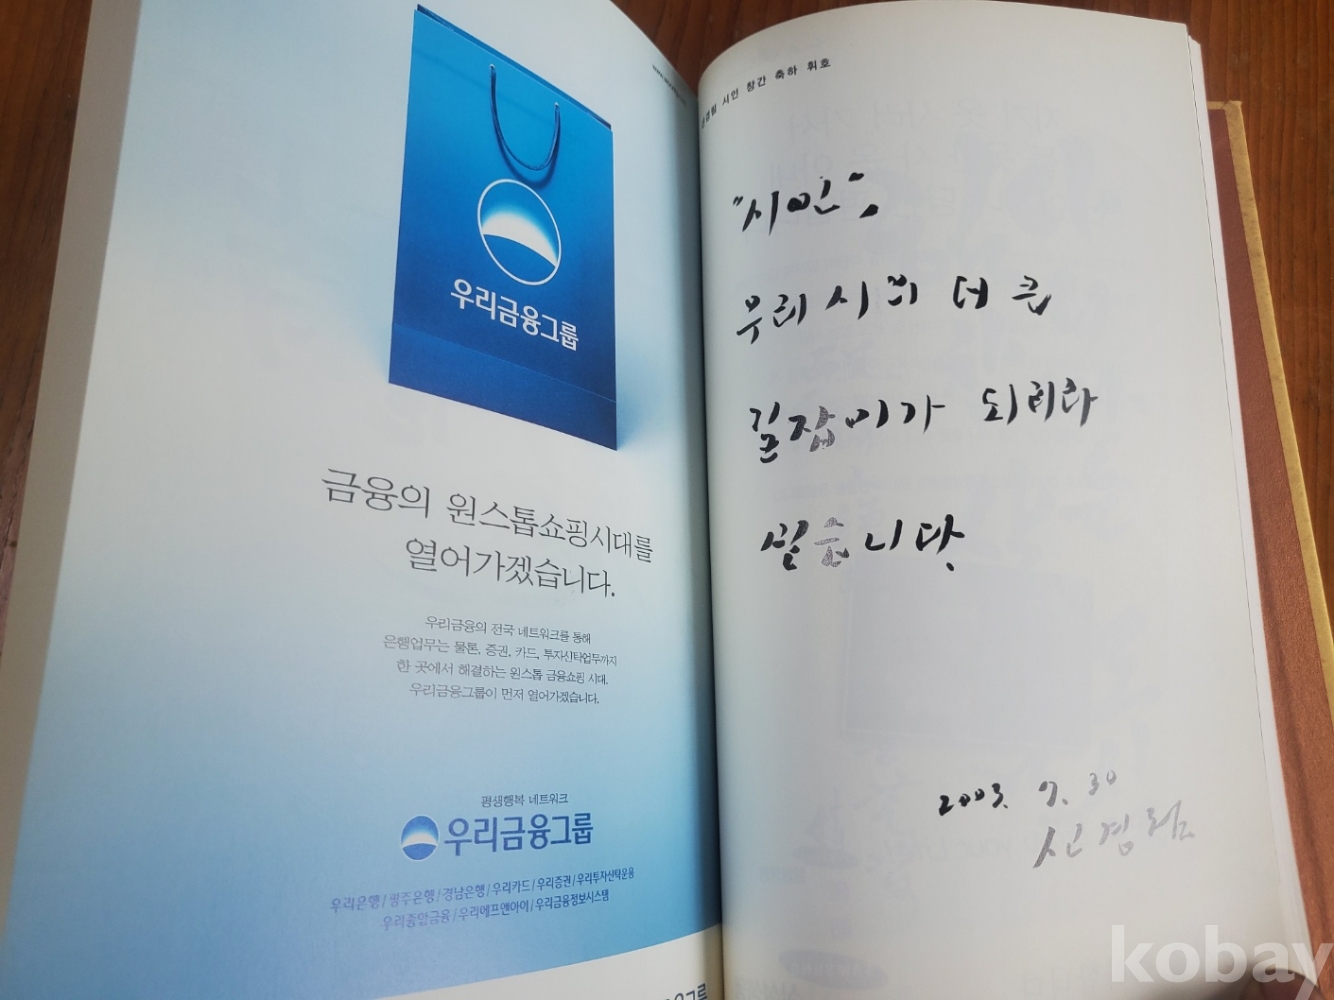 우리금융그룹
금융의 원스톱쇼핑시대를
열어가겠습니다.
우리금융의 전국 네트워크를 통해
은행업무는 물론, 증권, 카드, 투자신탁업무까지
한 곳에서 해결하는 원스톱 금융쇼핑 시대.
우리금융그룹이 먼저 열어가겠습니다.
평생행복 네트워크
우리금융그룹
우리은행/광주은행/경남은행/우리카드/우리증권/우리투자신탁운용
우리종합금융/우리에프앤아이/우리금융정보시스템
시인 창간 축하 휘호
"시인",
우리 시의 더 큰
길잡이가 되리라
믿습니다.
2003. 9. 30
신경림
kobay